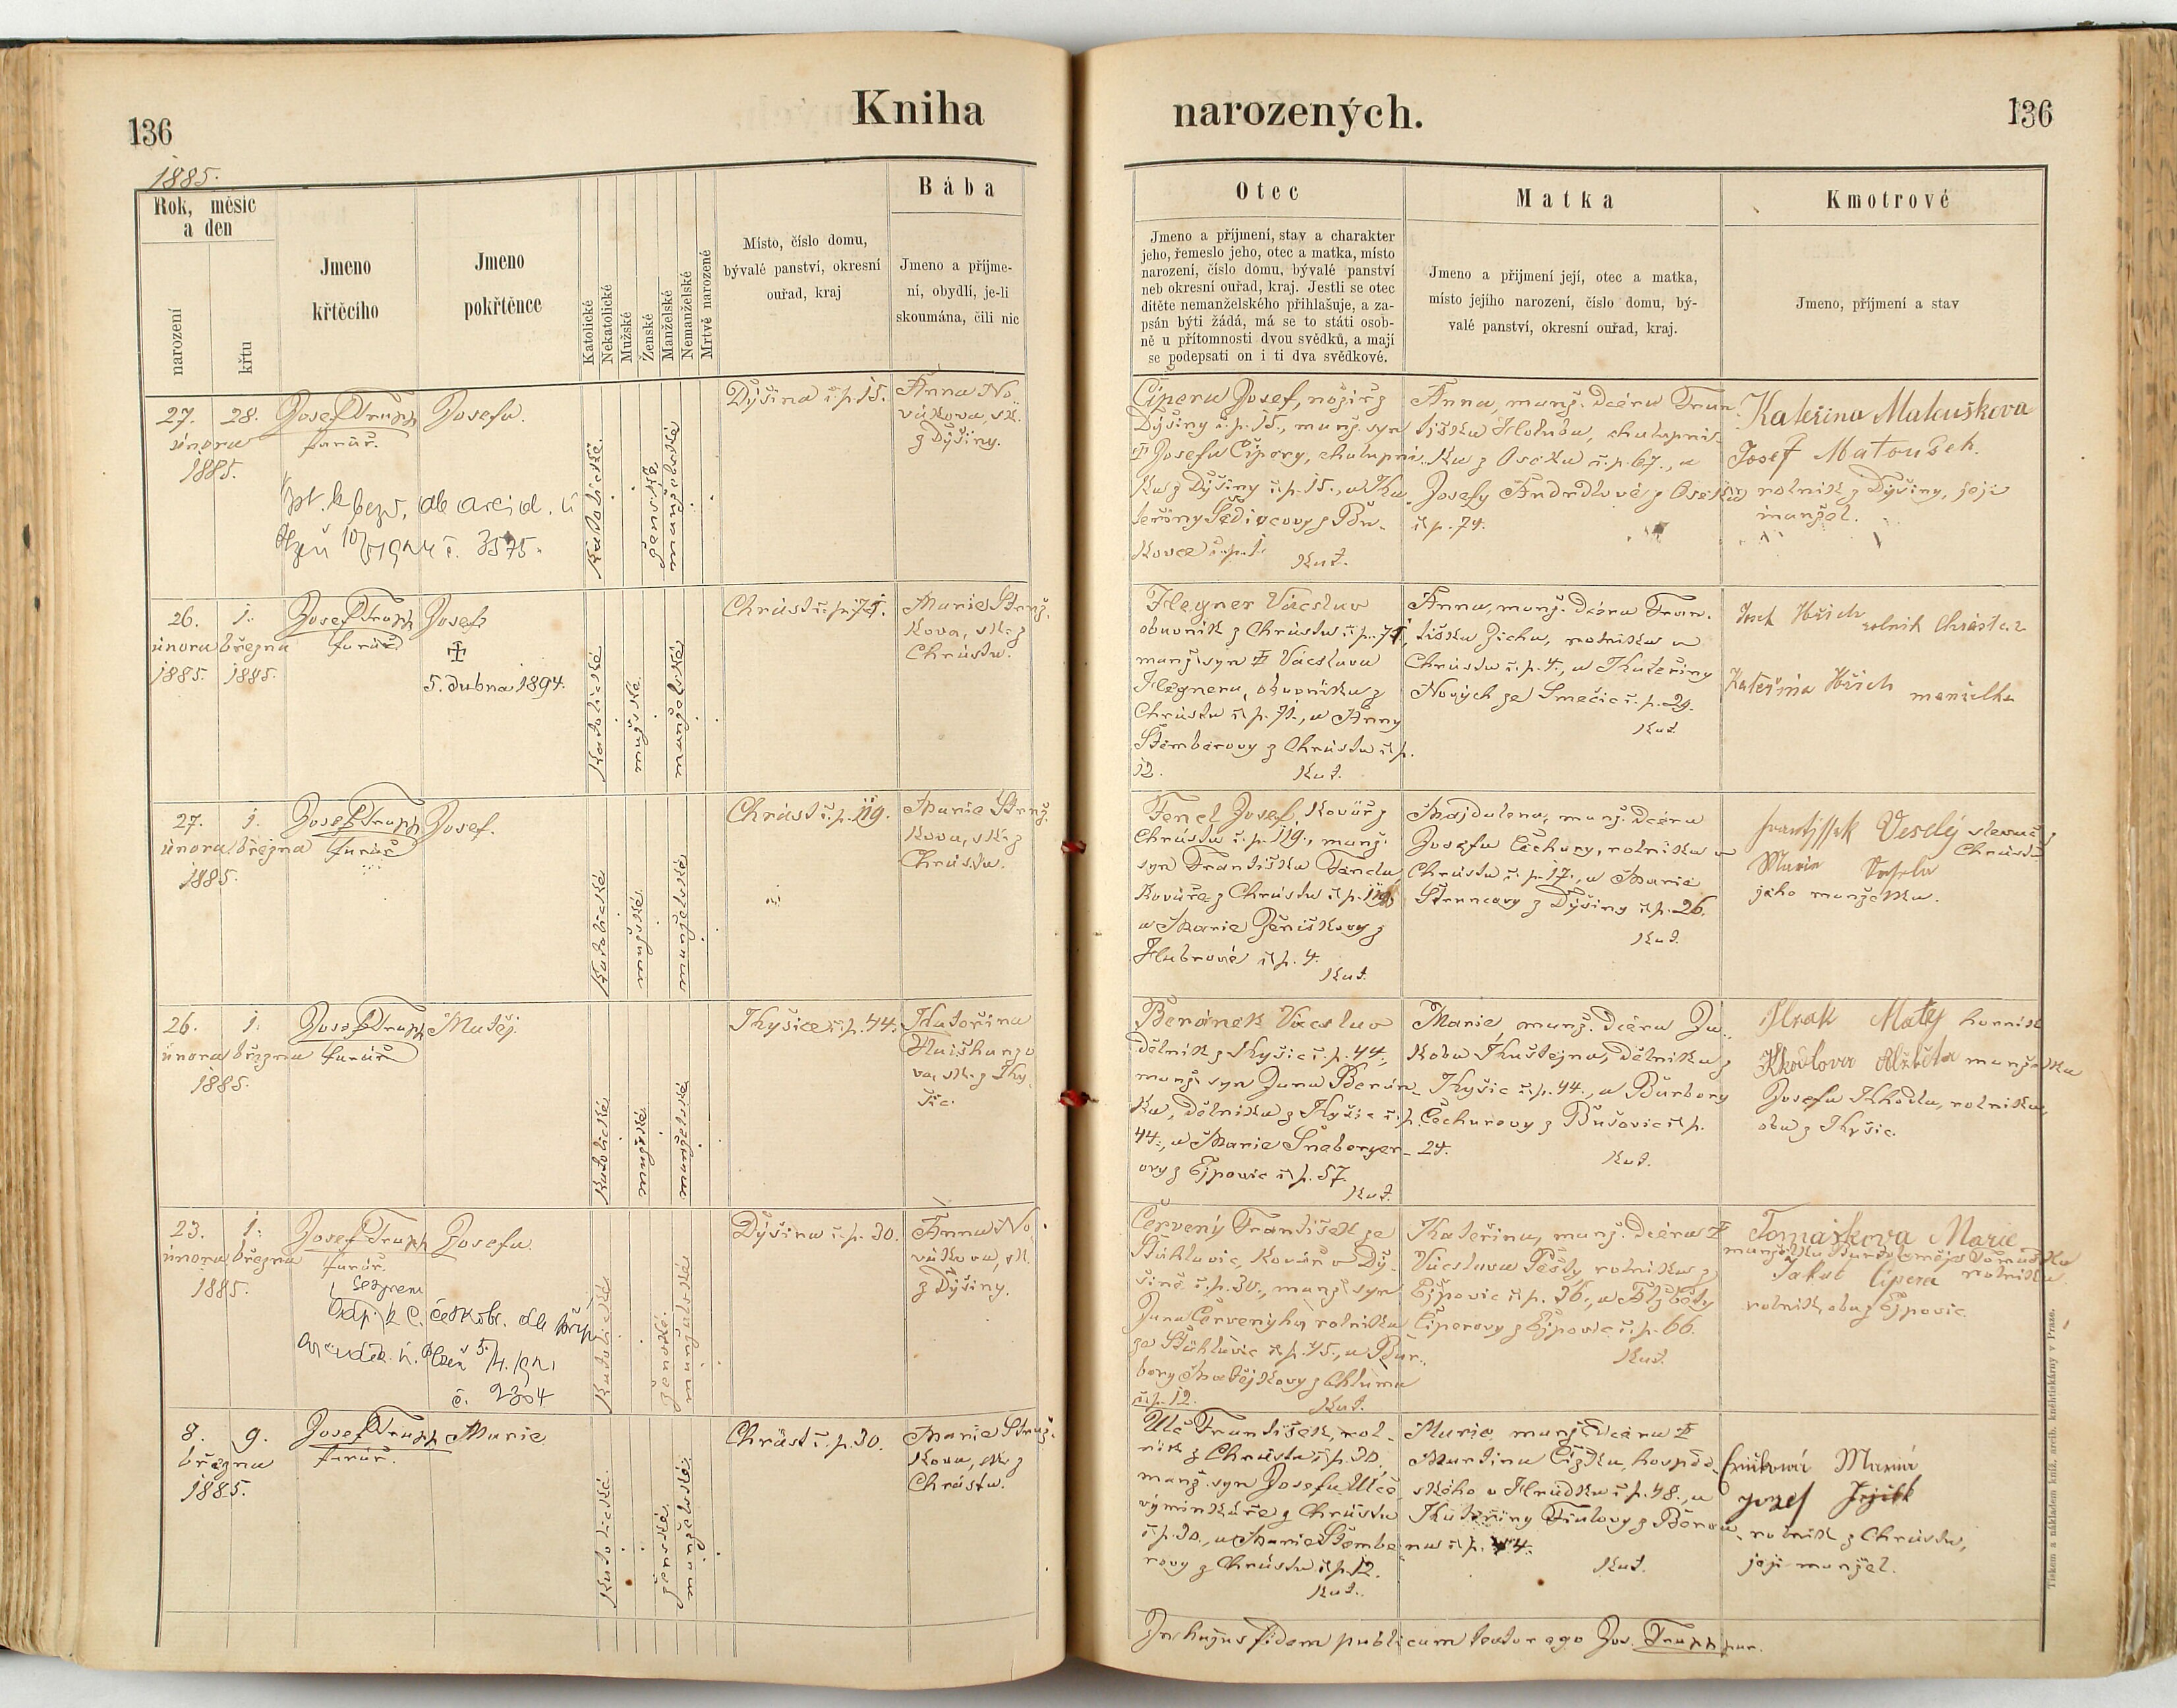 136
Kniha
narozených.
136
1885.
Rok, měsíc
a den
narození
křtu
Jmeno
křtěcího
Jmeno
pokřtěnce
Katolické
Nekatolické
Mužské
Ženské
Manželské
Nemanželské
Mrtvě narozené
Místo, číslo domu,
bývalé panství, okresní
ouřad, kraj
Bába
Jmeno a příjme-
ní, obydlí, je-li
skoumána, čili nic
Otec
Jmeno a příjmení, stav a charakter
jeho, řemeslo jeho, otec a matka, místo
narození, číslo domu, bývalé panství
neb okresní ouřad, kraj. Jestli se otec
dítěte nemanželského přihlašuje, a za-
psán býti žádá, má se to státi osob-
ně u přítomnosti dvou svědků, a mají
se podepsati on i ti dva svědkové.
Matka
Jmeno a přijmení její, otec a matka,
místo jejího narození, číslo domu, bý-
valé panství, okresní ouřad, kraj.
Kmotrové
Jmeno, příjmení a stav
27. 28.
února
1885.
Josef Trapp
farář.
Josefa.
č. 3575.
katolické
ženské
manželské
Dýšina č.p. 15.
Anna No-
vákova, sk.
z Dýšiny.
Cipera Josef, nožíř z
Dýšiny č.p. 15., manž. syn
Josefa Čipery, chalupní-
ka z Dýšiny č.p. 15., a Ka-
teřiny Šedivcovy z Bu-
kovce č.p. 1.
Kat.
Anna, manž. dcera Fran-
tiška Holuba, chalupní-
ka z Oseka č.p. 67., a
Josefy Andrdlové z Oseka
č.p. 74.
Kateřina Matouškova
Josef Matoušek.
rolník z Dýšiny, její
manžel.
26. 1.
února března
1885. 1885.
Josef Trapp
farář
Josef
5. dubna 1894.
katolické
mužské
manželské
Chrást č.p. 71.
Marie Struž-
kova, sk. z
Chrástu.
Hegner Václav
obuvník z Chrástu č.p. 71,
manž. syn Václava
Hegnera, obuvníka z
Chrástu č.p. 71., a Anny
Štemberovy z Chrástu č.p.
12.
Kat.
Anna, manž. dcera Fran-
tiška Zicha, rolníka v
Chrástu č.p. 4., a Kateřiny
Nových ze Smečic č.p. 29.
Kat.
rolník Chrást č. 2
Kateřina manželka
27. 1.
února března
1885.
Josef Trapp
farář
Josef.
katolické
mužské
manželské
Chrást č.p. 119.
Marie Struž-
kova, sk. z
Chrástu.
Fencl Josef, kovář z
Chrástu č.p. 119., manž.
syn Františka Fencla
kováře z Chrástu č.p. 119,
a Marie Ženíškovy z
Habrové č.p. 4.
Kat.
Majdalena, manž. dcera
Josefa Čechury, rolníka v
Chrástu č.p. 17., a Marie
Štruncovy z Dýšiny č.p. 26.
Kat.
Frantíssek Veselý
Chrástu
Marie Vesela
jeho manželka.
26. 1.
února března
1885.
Josef Trapp
farář
Matěj.
katolické
mužské
manželské
Kyšice č.p. 44.
Kateřina
va, sk. z Ky-
šic.
Beránek Václav
dělník z Kyšic č.p. 44.,
manž. syn Jana Berán-
ka, dělníka z Kyšic č.p.
44., a Marie Šneberger-
ovy z Ejpovic č.p. 57.
Kat.
Marie, manž. dcera Ja-
koba Kuštejna, dělníka z
Kyšic č.p. 44., a Barbory
Čechurovy z Bušovic č.p.
24.
Kat.
Matěj horník
Alžběta manželka
Josefa Khodla, rolníka,
oba z Kyšic.
23. 1.
února března
1885.
Josef Trapp
farář.
Josefa.
č. 2304
katolické
ženské.
manželské
Dýšina č.p. 30.
Anna No-
vákova, sk.
z Dýšiny.
Červený František ze
Štáhlavic, kovář v Dý-
šině č.p. 30., manž. syn
Jana Červenýho, rolníka
ze Štáhlavic č.p. 15., a Bar-
bory Matějkovy z Chlumu
č.p. 12.
Kat.
Kateřina, manž. dcera
Václava Pešty, rolníka z
Ejpovic č.p. 36., a Alžběty
Čiperovy z Ejpovic č.p. 66.
Kat.
Tomaškova Marie
manželka Bartoloměje Tomáška
rolníka
Jakub Cipera
rolník, oba z Ejpovic.
8. 9.
března
1885.
Josef Trapp
farář.
Marie
katolické.
ženské.
manželské.
Chrást č.p. 30.
Marie Struž-
kova, sk. z
Chrástu.
Ulč František, rol-
ník z Chrástu č.p. 30,
manž. syn Josefa Ulče
výminkáře z Chrástu
č.p. 30., a Marie Štembe-
rovy z Chrástu č.p. 12.
Kat.
Marie, manž. dcera
Martina Čížka, hospod-
ského v Hrádku č.p. 48., a
Kateřiny Fialovy z Berou-
na č.p. 4.
Kat.
Marie
Josef
rolník z Chrástu,
její manžel.
In hujus fidem publicam testor ego Jos. Trapp par.
Tiskem a nákladem kníž. arcib. knihtiskárny v Praze.